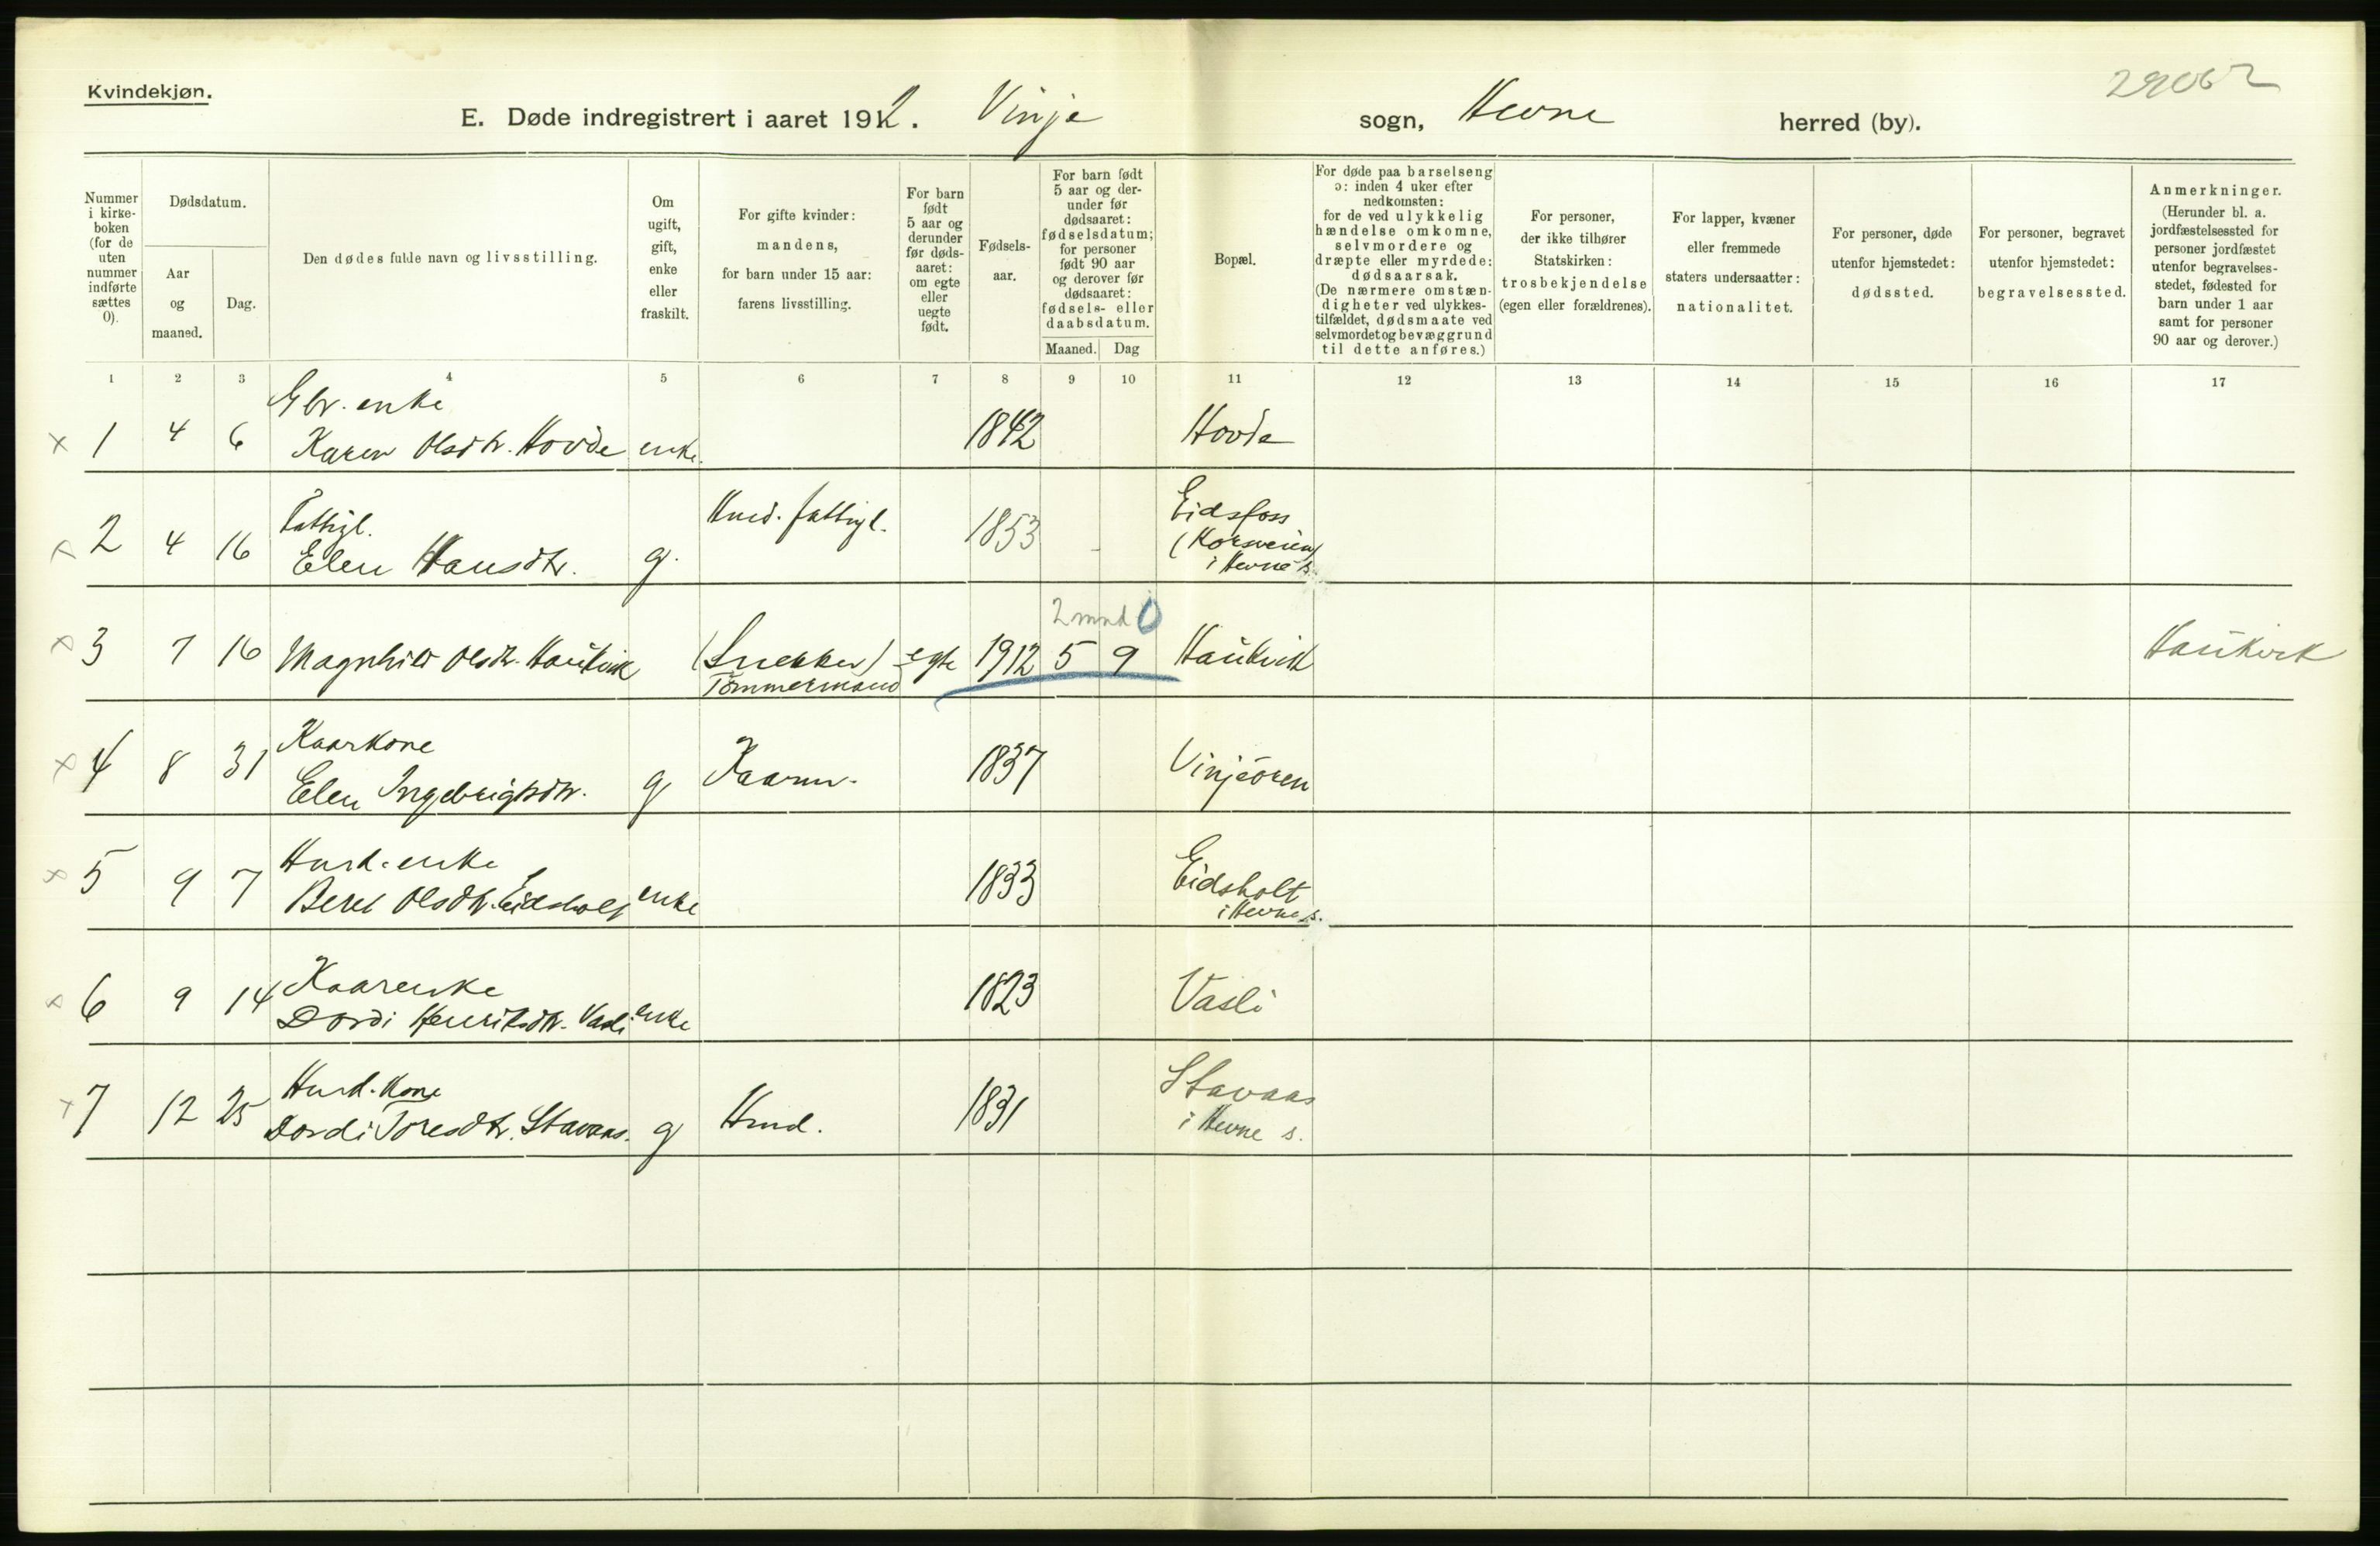 Kvindekjøn.
29062
E. Døde indregistrert i aaret 1912. Vinje sogn, Hevne herred (by).
Nummer i kirke-boken (for de uten nummer indførte sættes 0).
Dødsdatum.
Aar og maaned.
Dag.
Den dødes fulde navn og livsstilling.
Om ugift, gift, enke eller fraskilt.
For gifte kvinder: mandens, for barn under 15 aar: farens livsstilling.
For barn født 5 aar og derunder før døds-aaret: om egte eller uegte født.
Fødsels-aar.
For barn født 5 aar og der-under før dødsaaret: fødselsdatum; for personer født 90 aar og derover før dødsaaret: fødsels- eller daabsdatum.
Maaned. Dag
Bopæl.
For døde paa barselseng ɔ: inden 4 uker efter nedkomsten: for de ved ulykkelig hændelse omkomne, selvmordere og dræpte eller myrdede: dødsaarsak. (De nærmere omstæn-digheter ved ulykkes-tilfældet, dødsmaate ved selvmord et og bevæggrund til dette anføres.)
For personer, der ikke tilhører Statskirken: trosbekjendelse (egen eller forældrenes).
For lapper, kvæner eller fremmede staters undersaatter: nationalitet.
For personer, døde utenfor hjemstedet: dødssted.
For personer, begravet utenfor hjemstedet: begravelsessted.
Anmerkninger. (Herunder bl. a. jordfæstelsessted for personer jordfæstet utenfor begravelses-stedet, fødested for barn under 1 aar samt for personer 90 aar og derover.)
1 2 3 4 5 6 7 8 9 10 11 12 13 14 15 16 17
Gbr. enke
x 1 4 6 Karen Olsdtr. Hovde enke. 1842 Hovde
Fattigl. Husd. fattigl. Eidsfoss
x 2 4 16 Elen Hansdtr. g. 1853 - (Korsveien) i Hevne s.
2 mnd 0
x 3 7 16 Magnhild Olsdtr. Haukvik (Snekker) egte 1912 5 9 Haukvik Haukvik
Tømmermand
Kaarkone
x 4 8 31 Elen Ingebrigtsdtr. g Kaarm. 1837 Vinjeøren
Husd. enke
x 5 9 7 Beret Olsdtr. Eidsholt enke 1833 Eidsholt
i Hevne s.
Kaarenke
x 6 9 14 Dordi Henriksdtr. Vasli enke 1823 Vasli
Husd. Kone Stavaas
x 7 12 25 Dordi Toresdtr. Stavaas. g Husd. 1831 i Hevne s.